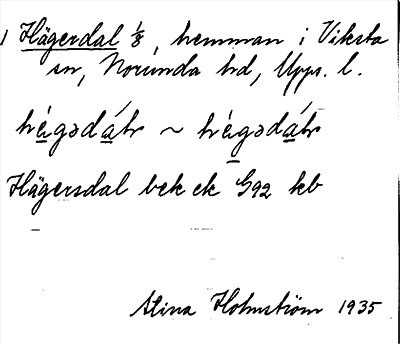 1 Hägerdal 1/8, hemman i Viksta
sn, Norunda hd, Upps. l.
hä́gǝdáɫ ~ hä́gǝdáɫ
Hägersdal bek ek G92 kb
Stina Holmström 1935